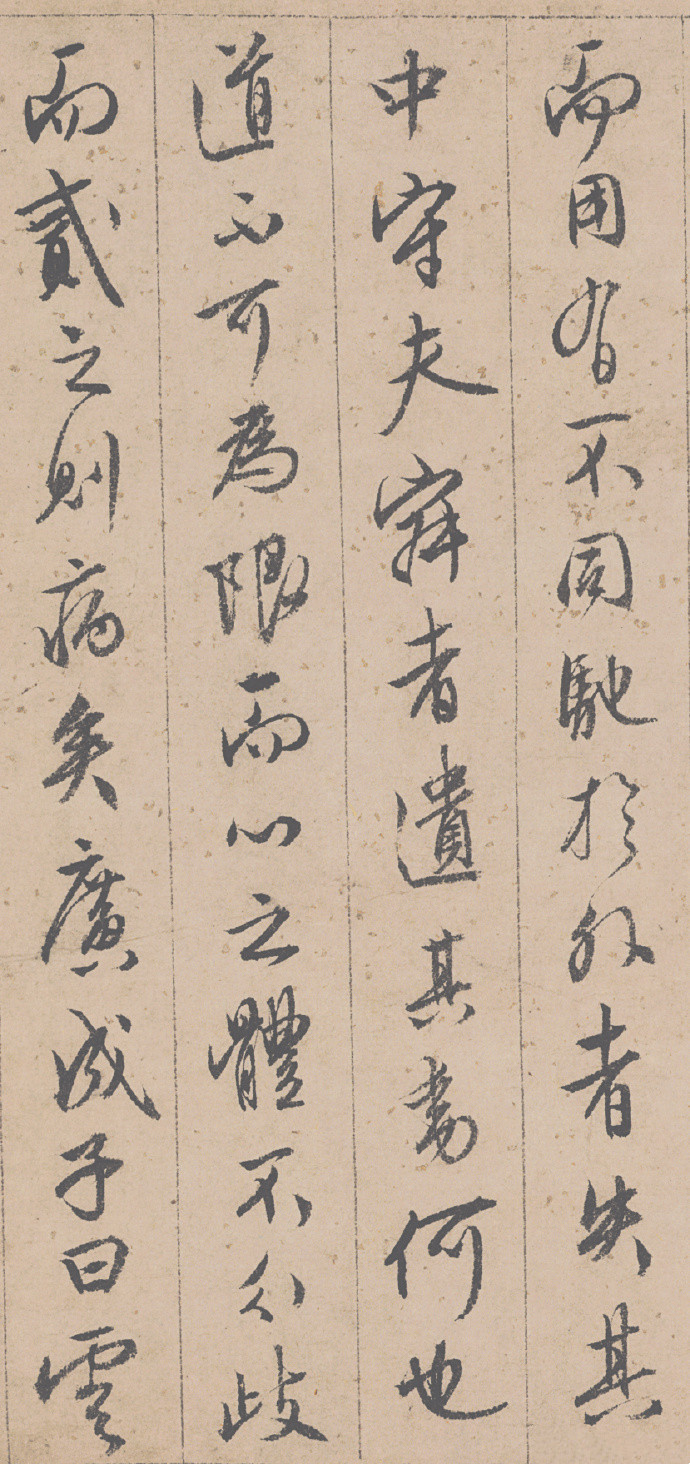 而用有不同馳於外者失其
中守夫者遺其何也
道不可為限而心之體不可分歧
而貳之則病矣廣成子曰雲